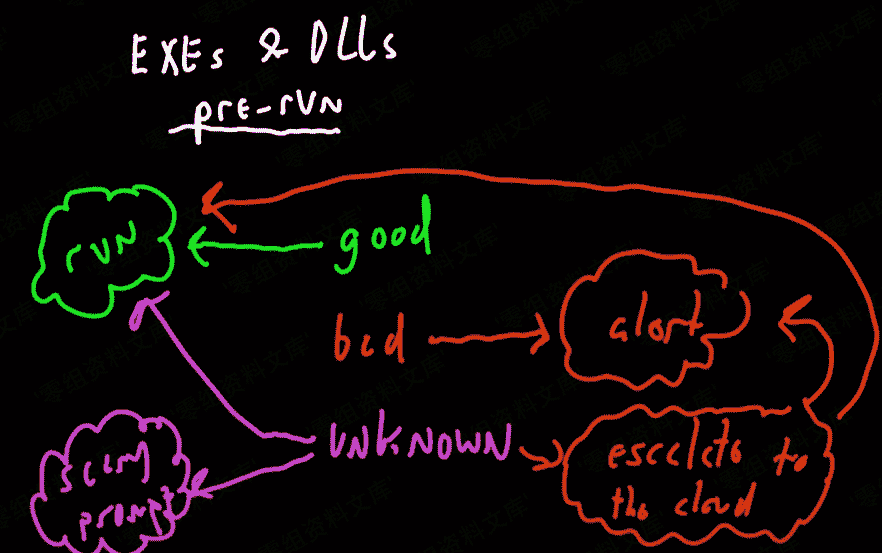 EXEs & DLLs
pre-run
run
good
bad
alert
unknown
scary
prompt
escalate to
the cloud
零组资料文库